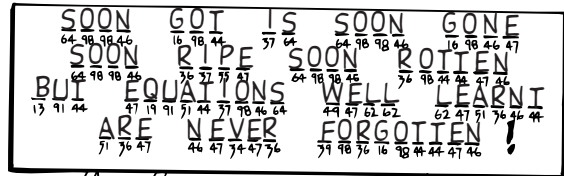 SOON GOT IS SOON GONE
64 98 98 46 16 98 44 37 64 64 98 98 46 16 98 46 47
SOON RIPE SOON ROTTEN
64 98 98 46 36 37 75 47 64 98 98 46 36 98 44 44 47 46
BUT EQUATIONS WELL LEARNT
13 91 44 47 19 91 51 44 37 98 46 64 49 47 62 62 62 47 51 36 46 44
ARE NEVER FORGOTTEN !
51 36 47 46 47 34 47 36 39 98 36 16 98 44 44 47 46